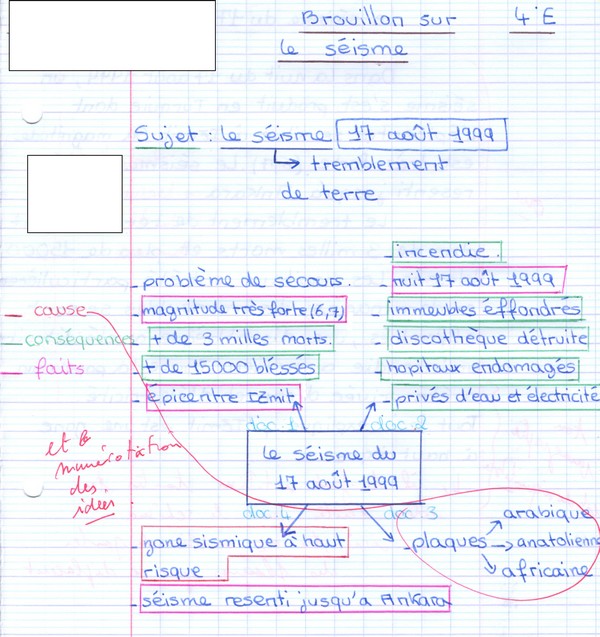 Brouillon sur 4°E
le séisme
Sujet : le séisme 17 août 1999
tremblement
de terre
- incendie.
- problème de secours.
- nuit 17 août 1999
- cause
- magnitude très forte (6,7)
- immeubles éffondrés
- conséquences
- + de 3 milles morts.
- discothèque détruite
- faits
- + de 15000 bléssés
- hopitaux endomagés
- épicentre IZmit
- privés d'eau et électricité
doc.1
doc.2
le séisme du
17 août 1999
et la
numérotation
des
idées
doc.4
doc.3
- zone sismique à haut
risque.
- plaques
arabique
anatolienne
africaine
- séisme resenti jusqu'a Ankara